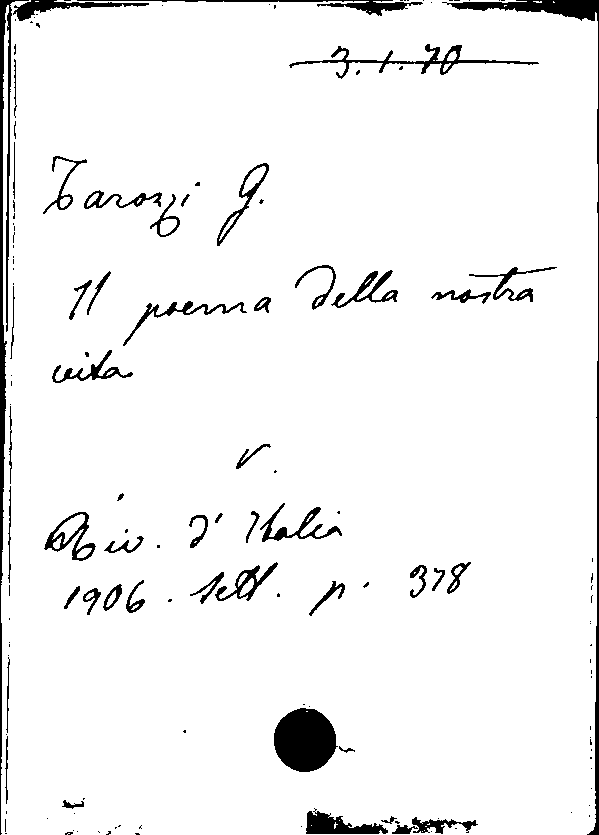 3.1.70
Tarozzi G.
Il poema della nostra
vita
v.
Riv. d'Italia
1906. Sett. p. 378